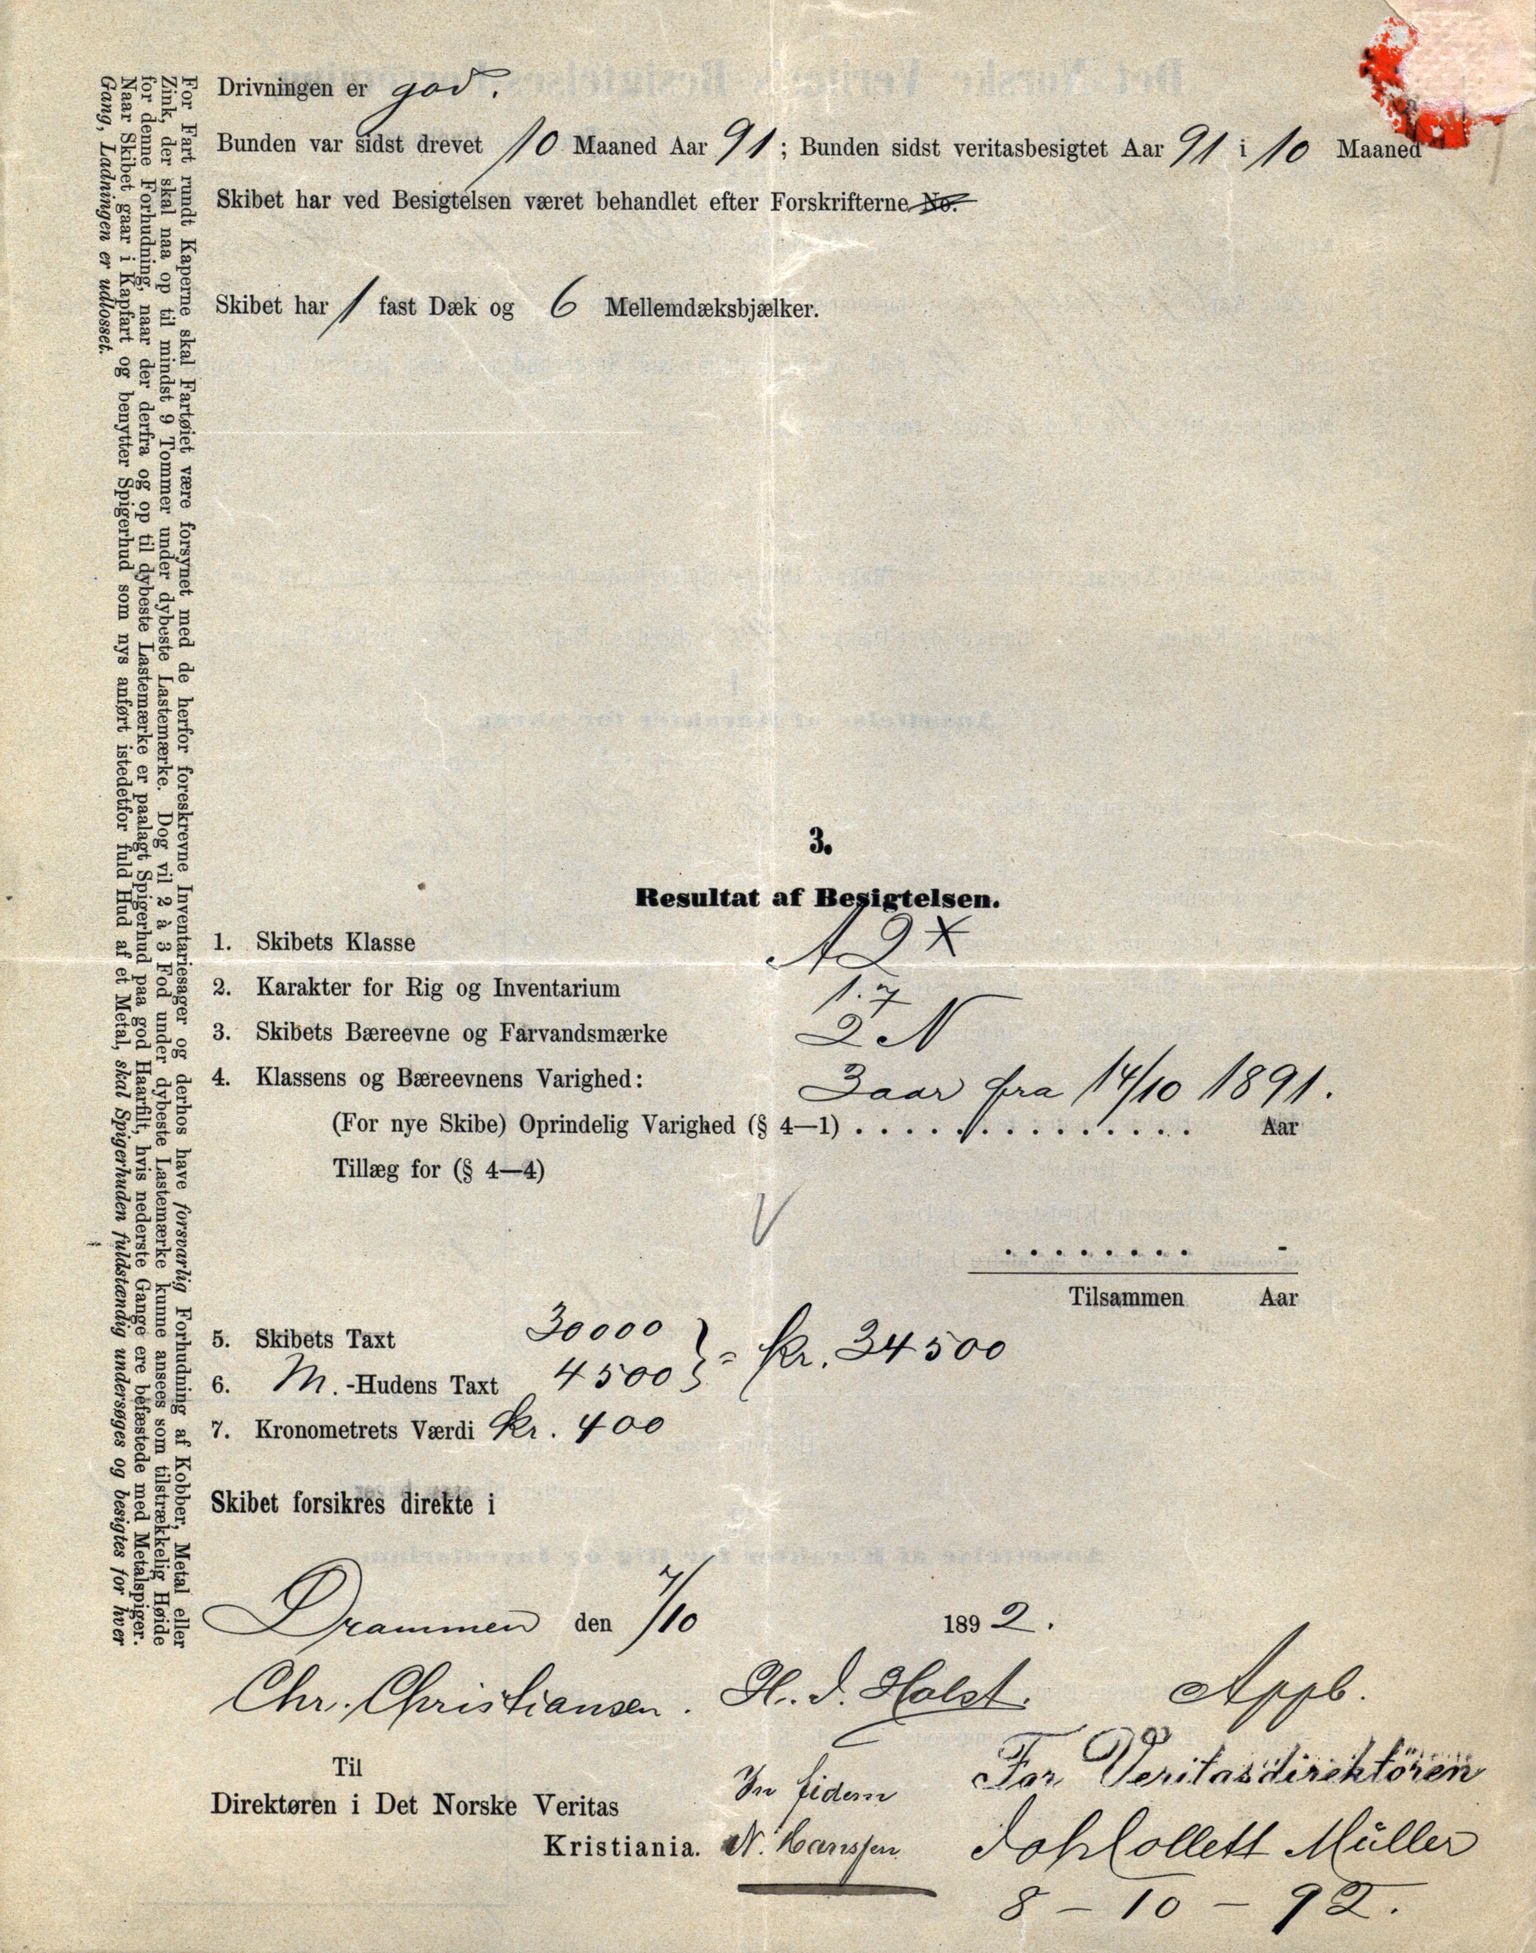 Drivningen er god.
Bunden var sidst drevet 10 Maaned Aar 91; Bunden sidst veritasbesigtet Aar 91 i 10 Maaned
Skibet har ved Besigtelsen været behandlet efter Forskrifterne No.
Skibet har 1 fast Dæk og 6 Mellemdæksbjælker.
For Fart rundt Kaperne skal Fartøiet være forsynet med de herfor foreskrevne Inventariesager og derhos have forsvarlig Forhudning af Kobber, Metal eller
Zink, der skal naa op til mindst 9 Tommer under dybeste Lastemærke. Dog vil 2 à 3 Fod under dybeste Lastemærke kunne ansees som tilstrækkelig Høide
for denne Forhudning, naar der derfra og op til dybeste Lastemærke er paalagt Spigerhud paa god Haarfilt, hvis nederste Gange ere befæstede med Metalspiger.
Naar Skibet gaar i Kapfart og benytter Spigerhud som nys anført istedetfor fuld Hud af et Metal, skal Spigerhuden fuldstændig undersøges og besigtes for hver
Gang, Ladningen er udlosset.
3.
Resultat af Besigtelsen.
1. Skibets Klasse A 2 X
2. Karakter for Rig og Inventarium 1.7
3. Skibets Bæreevne og Farvandsmærke 2 N
4. Klassens og Bæreevnens Varighed: 3 aar fra 14/10 1891.
(For nye Skibe) Oprindelig Varighed (§ 4—1) . . . . . . . . . . . . . . Aar
Tillæg for (§ 4—4)
V
. . . . . . . . -
Tilsammen Aar
5. Skibets Taxt 30000
6. M.-Hudens Taxt 4500 } = kr. 34500
7. Kronometrets Værdi kr. 400
Skibet forsikres direkte i
Drammen den 7/10 1892.
Chr. Christiansen. H. J. Holst. Appb.
Til
Direktøren i Det Norske Veritas
Kristiania.
In fidem
N. Hanssen
For Veritasdirektören
Joh Collett Müller
8 - 10 - 92.